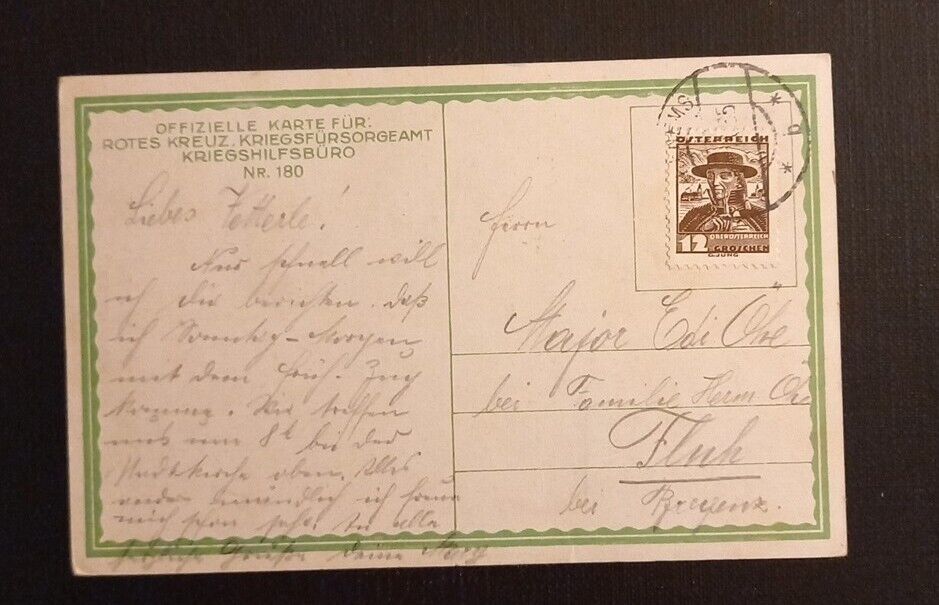 OFFIZIELLE KARTE FÜR:
ROTES KREUZ, KRIEGSFÜRSORGEAMT
KRIEGSHILFSBÜRO
NR. 180
Liebes Zetterle!
Nur schnell will
ich dir berichten, daß
ich Sonntag-Morgen
mit dem Früh-Zug
komme. Wir treffen
uns um 8h bei der
Stadtkirche oben. Alles
andre mündlich ich freue
mich schon sehr.
Grüße Deine
ÖSTERREICH
12
OBERÖSTERREICH
GROSCHEN
G.JUNG
Herrn
Major Edi
bei Familie Herm.
Fluh
bei Bregenz.